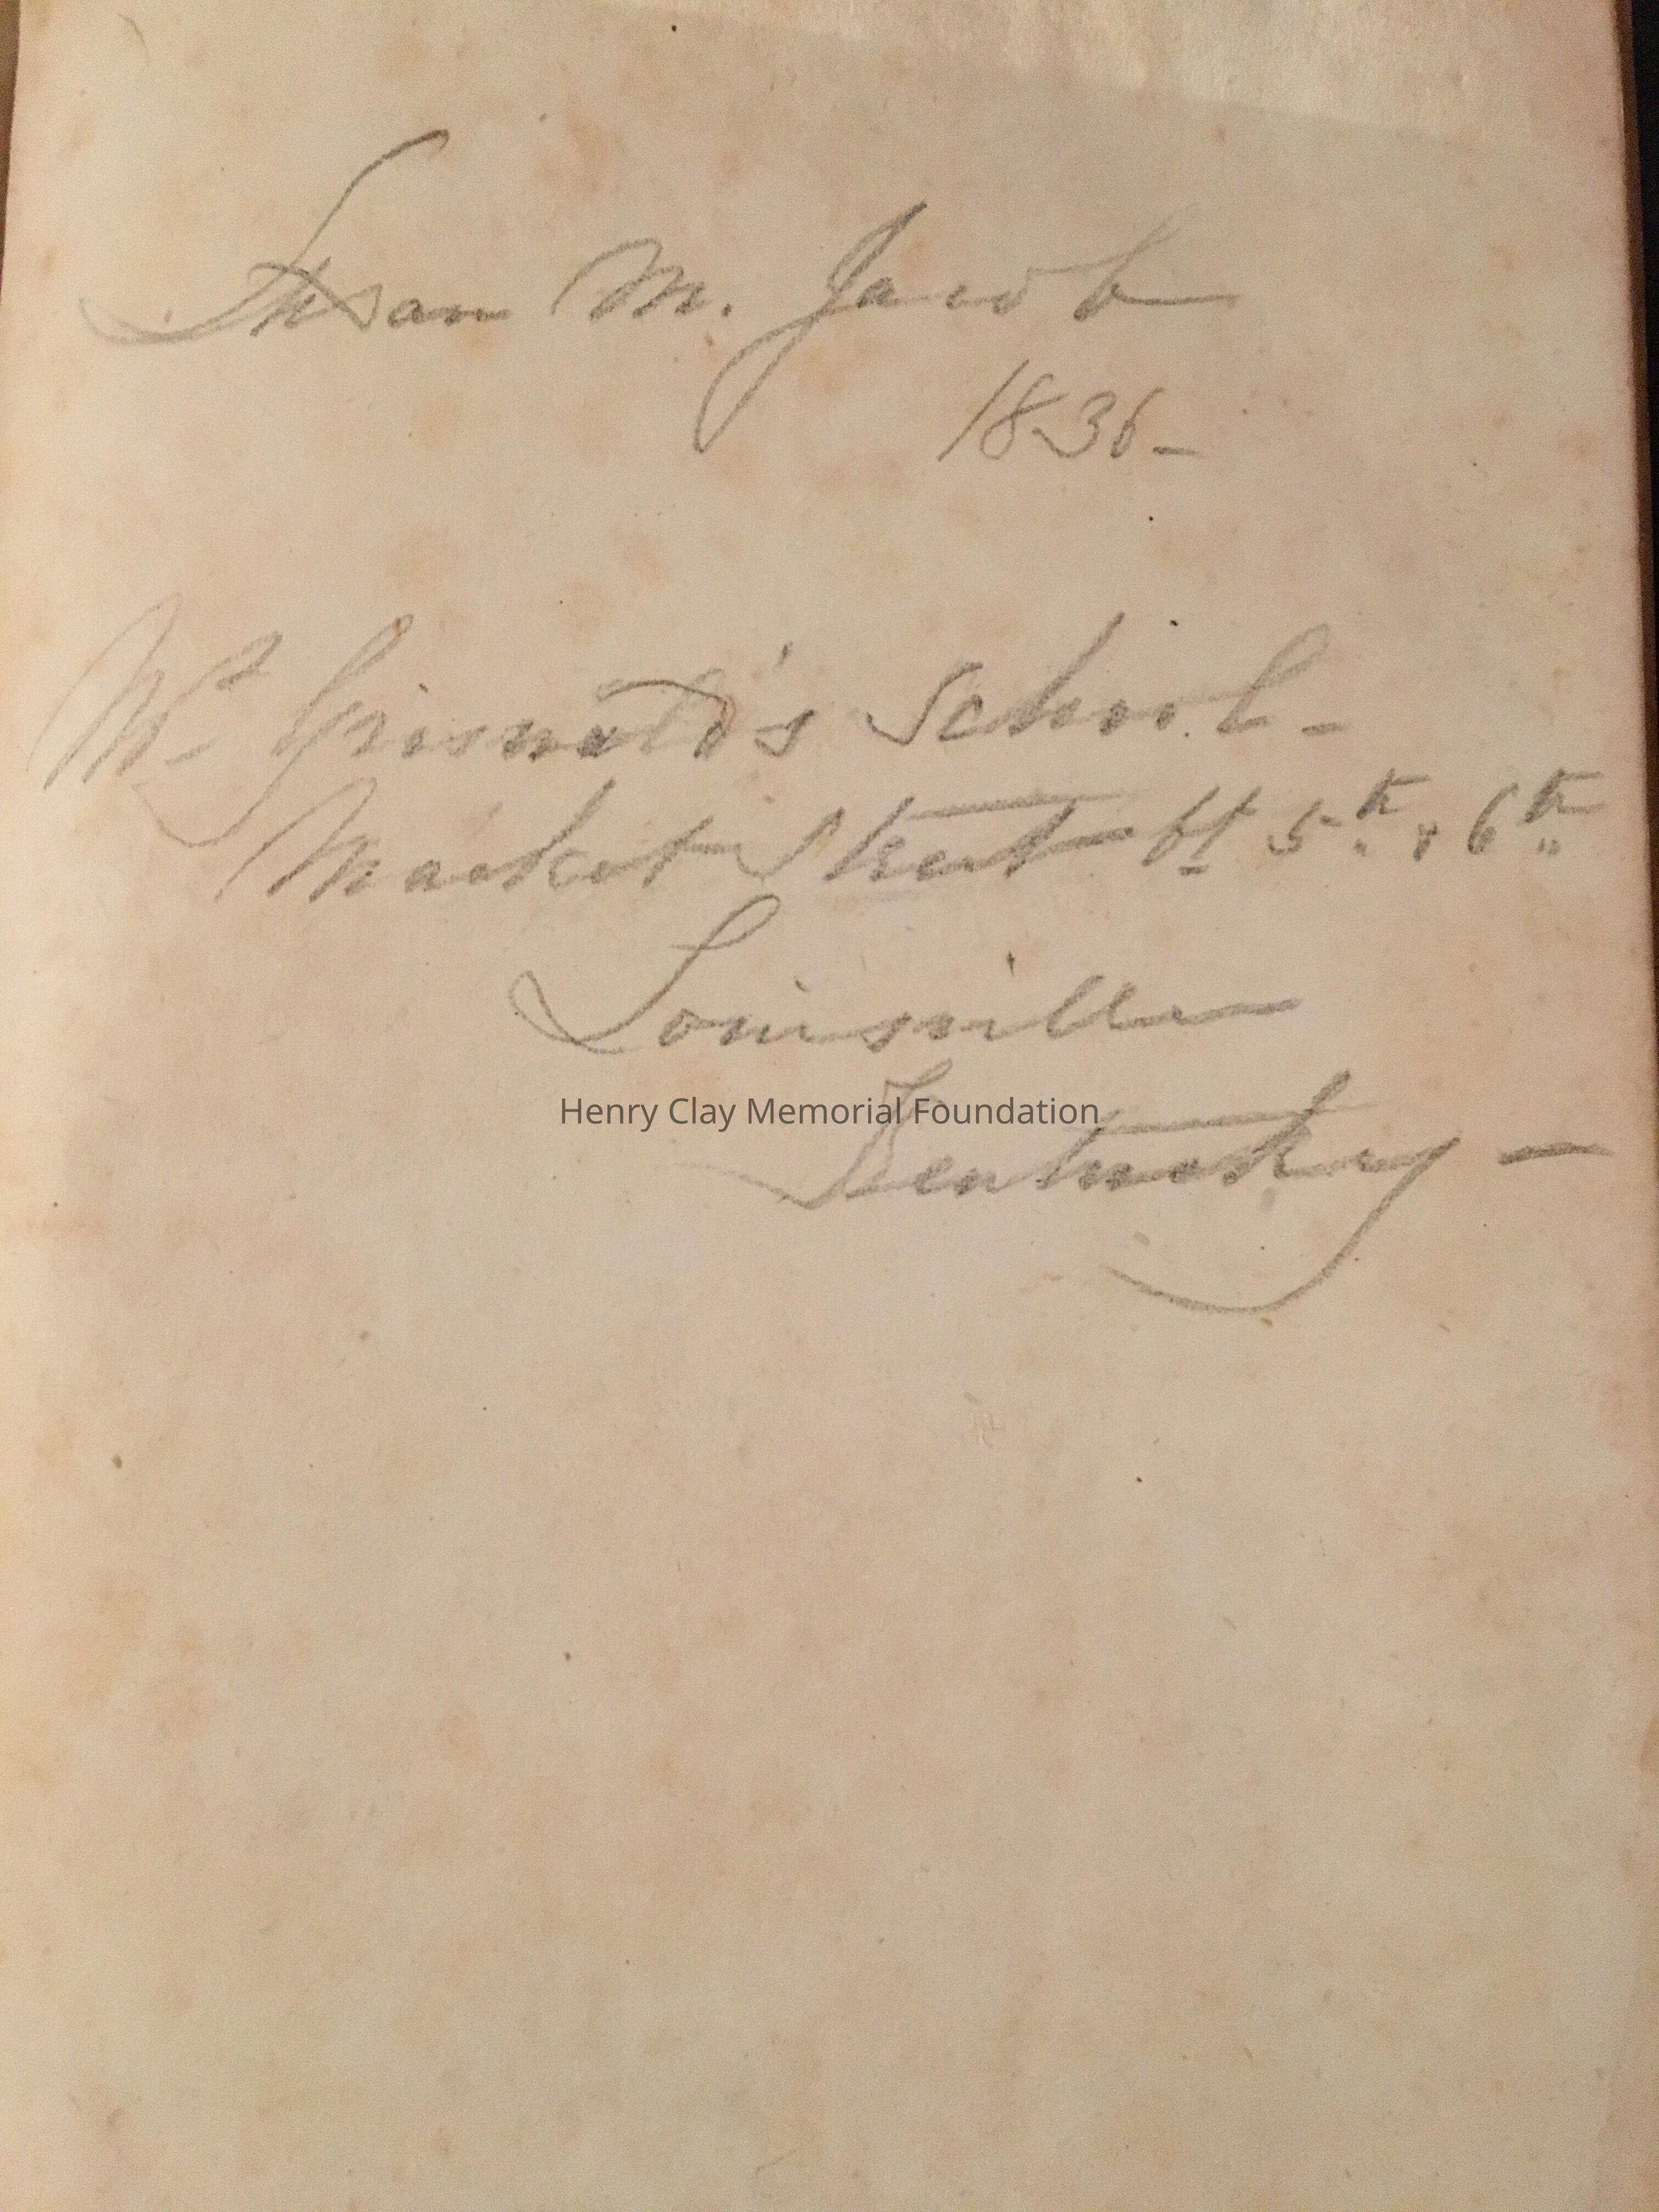 Susan M. Jacob
1836-
Mr Griswold's School-
Market Street bt 5th & 6th
Louisville
Henry Clay Memorial Foundation
Kentucky-